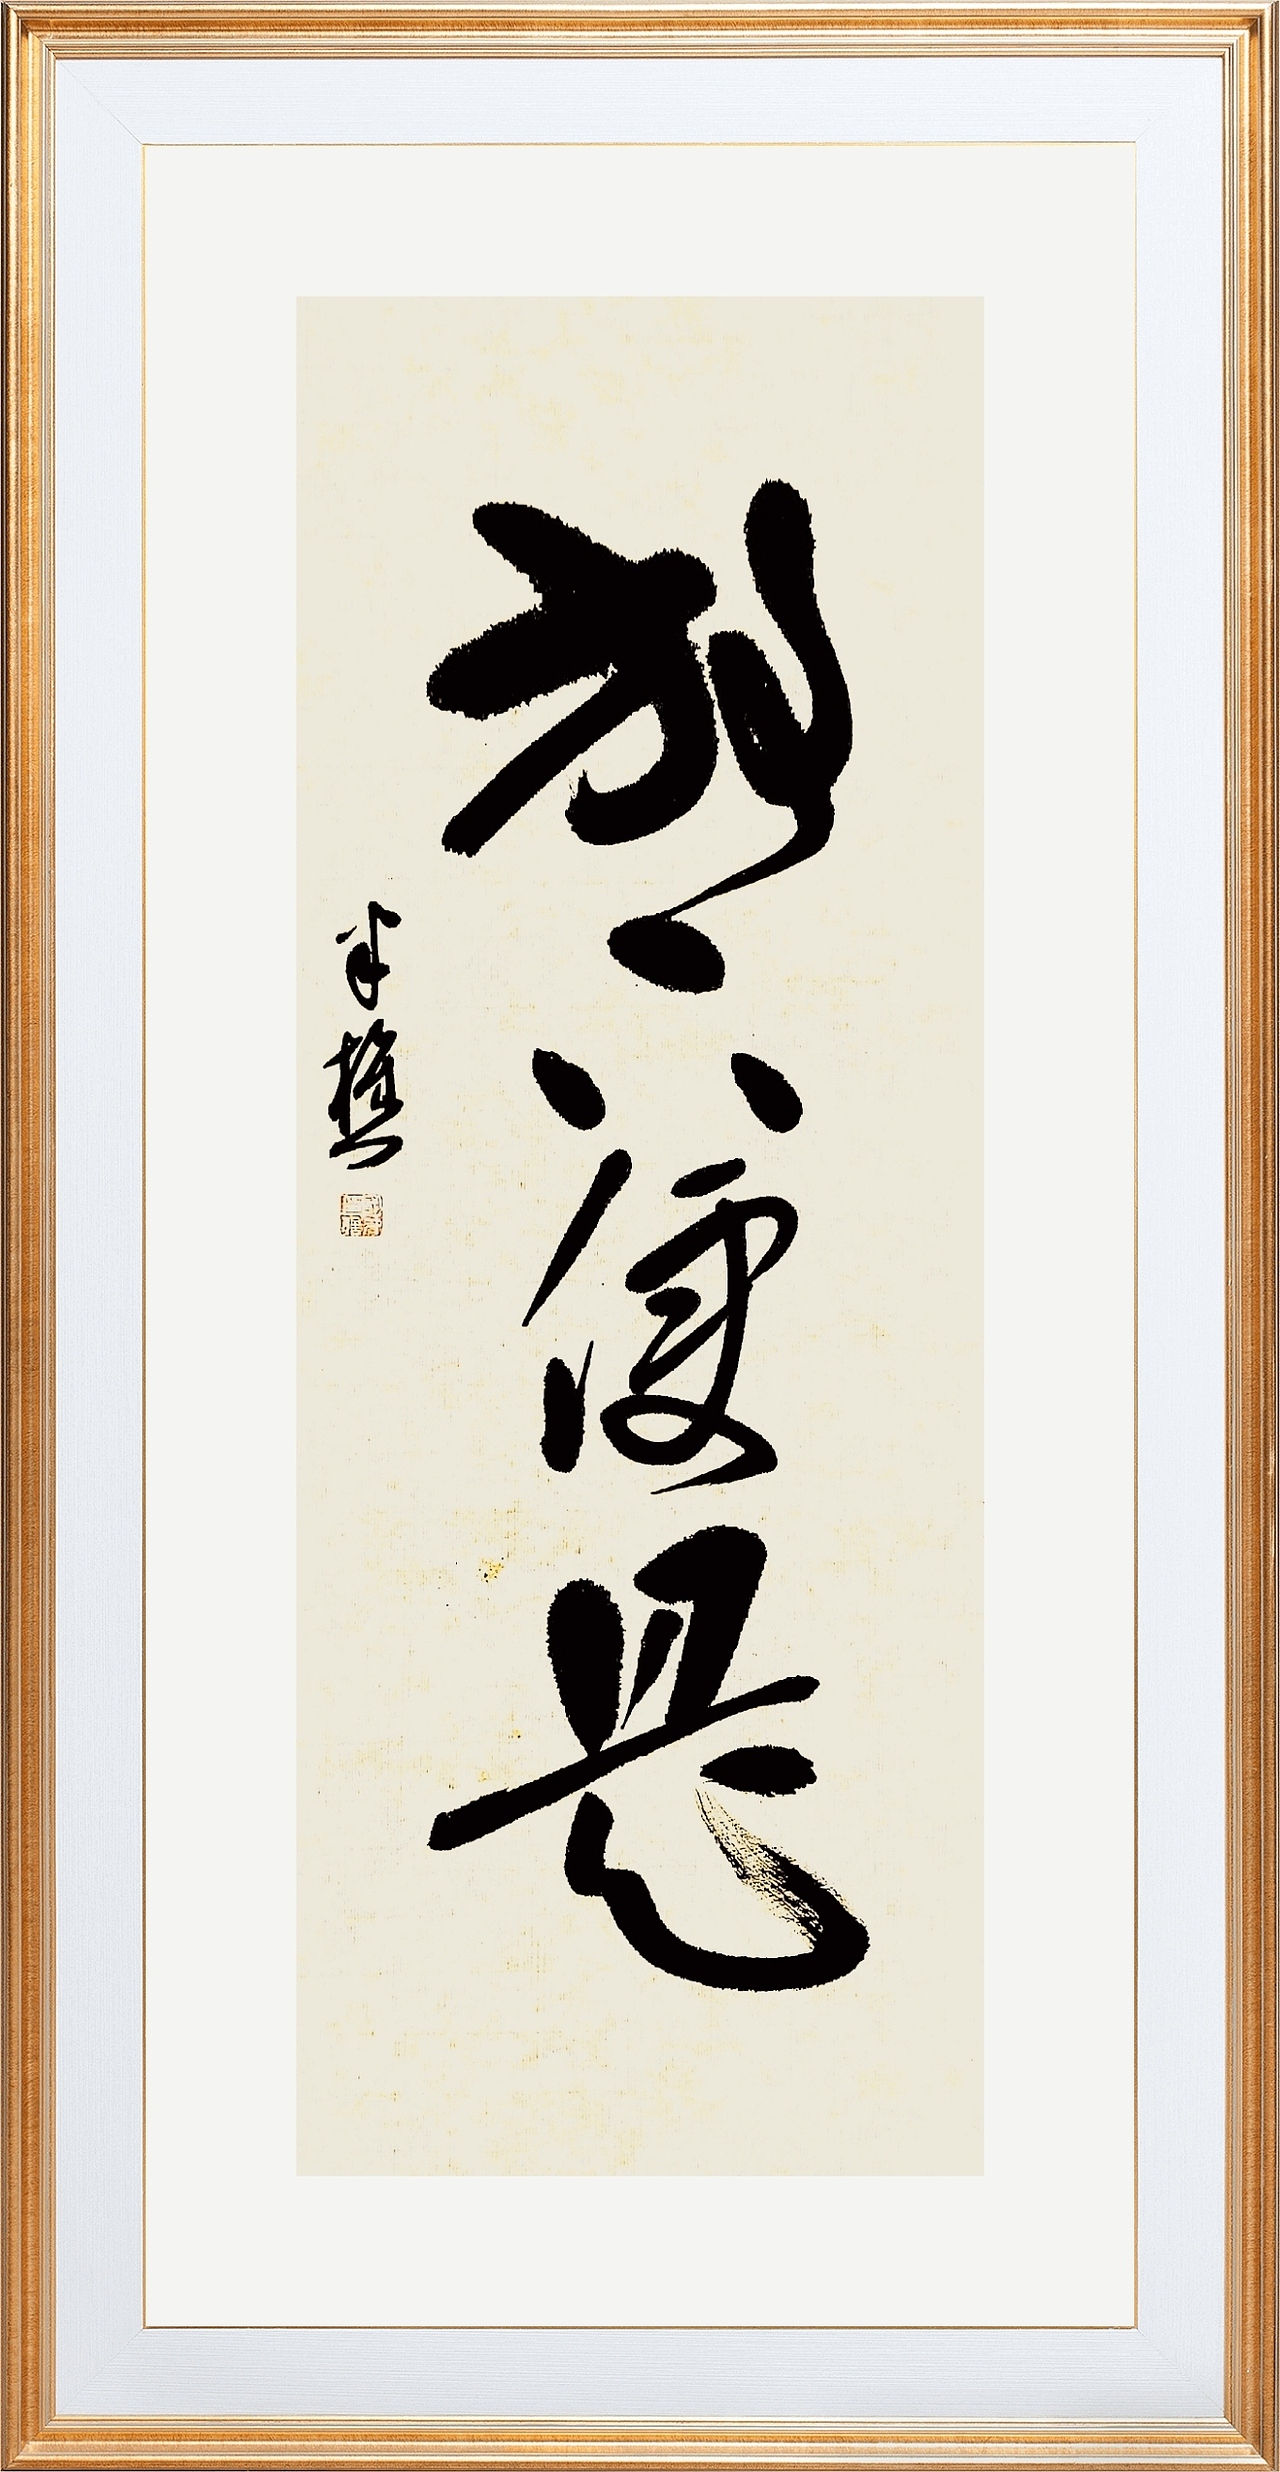 放下便是
半樵